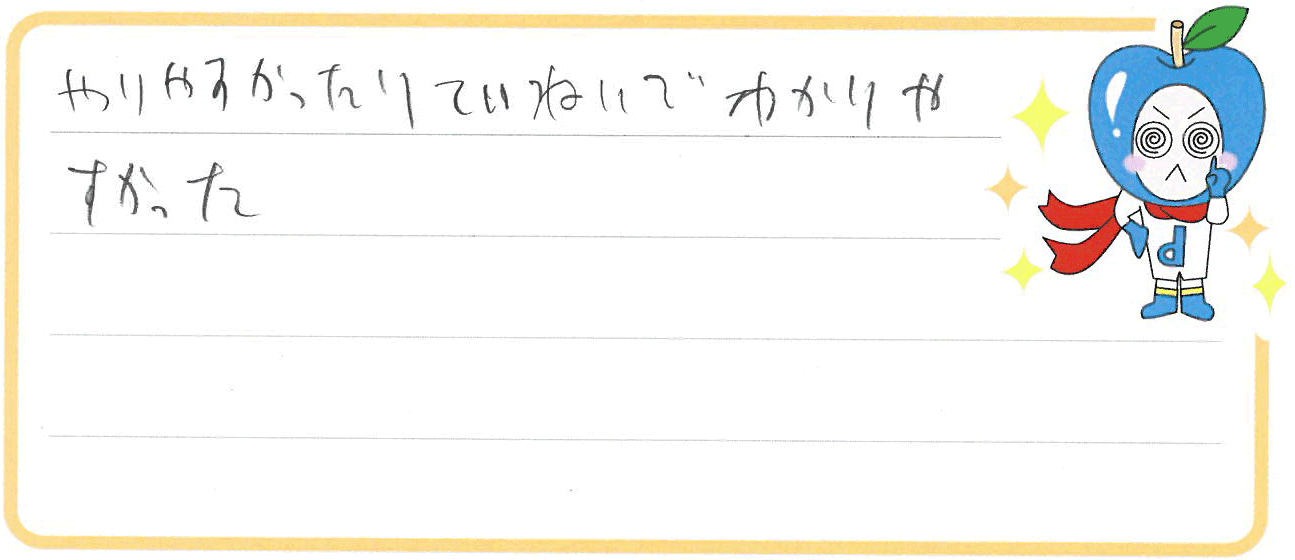 やりやすかったりていねいでわかりや
すかった
d